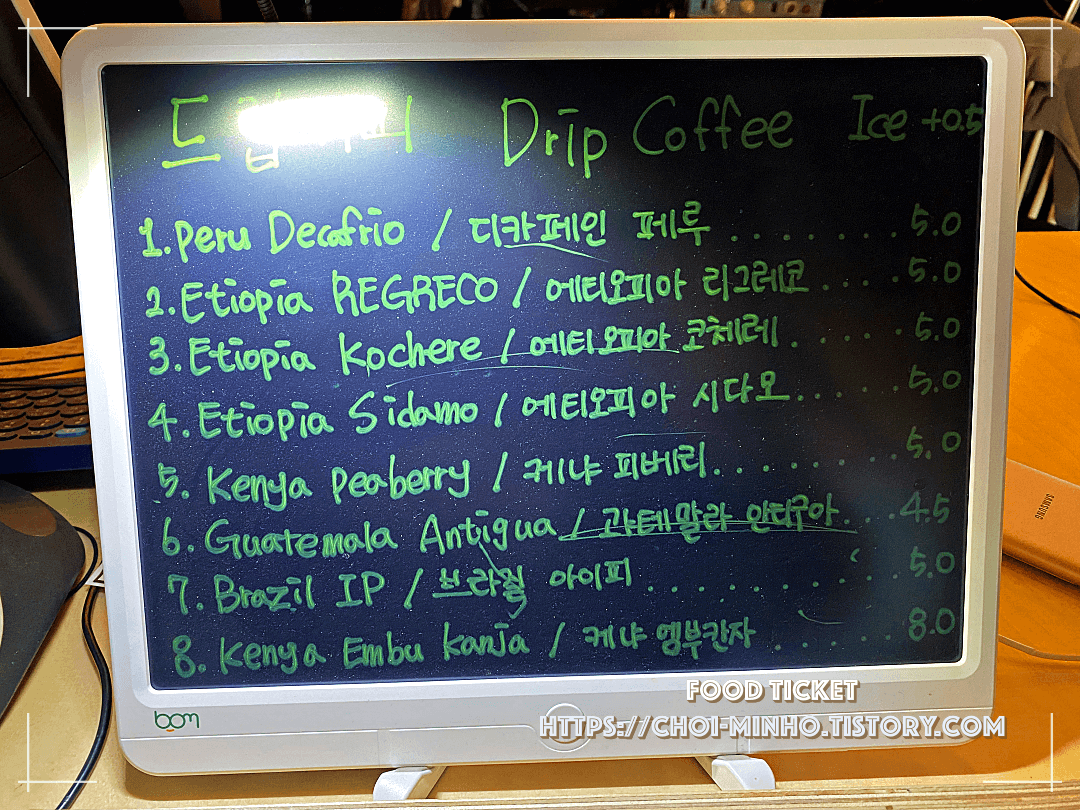 드립커피 Drip Coffee Ice +0.5
1. Peru Decafrio / 디카페인 페루 ........ 5.0
2. Etiopia REGRECO / 에티오피아 리그레코 .... 5.0
3. Etiopia Kochere / 에티오피아 코체레 ..... 5.0
4. Etiopia Sidamo / 에티오피아 시다모 ...... 5.0
5. Kenya Peaberry / 케냐 피베리 ........ 5.0
6. Guatemala Antigua / 과테말라 안티구아 ... 4.5
7. Brazil IP / 브라질 아이피 .......... 5.0
8. Kenya Embu Kanja / 케냐 엠부칸자 ...... 8.0
SAMSUNG
bom
FOOD TICKET
HTTPS://CHOI-MINHO.TISTORY.COM